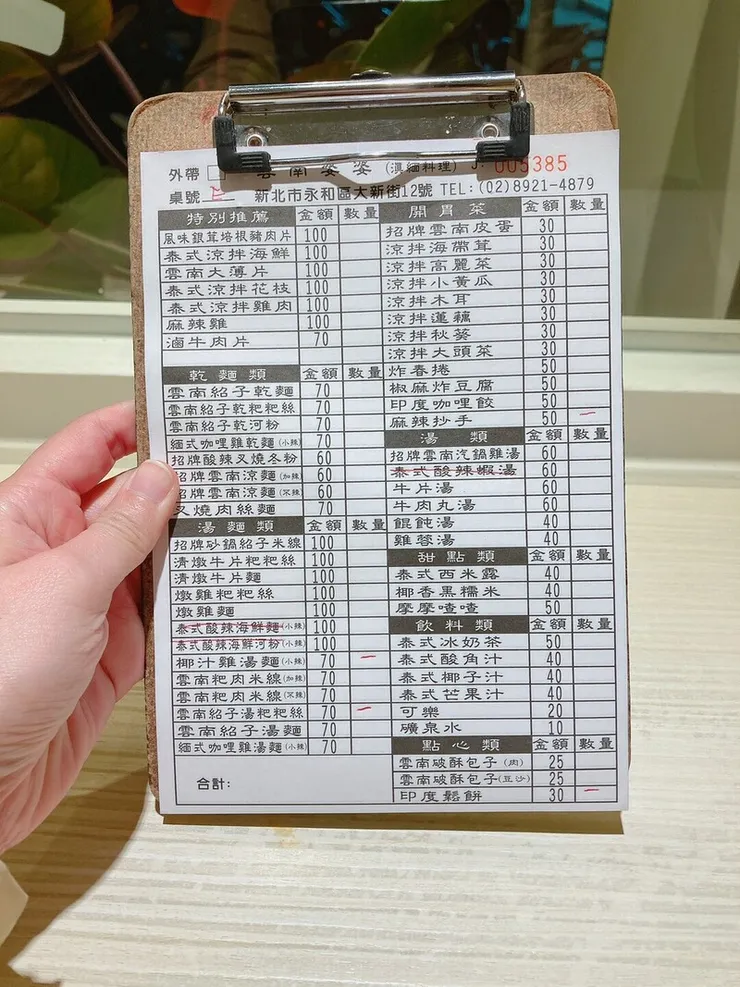 外帶 雲南婆婆 (滇緬料理) 005385
桌號 E 新北市永和區大新街12號 TEL:(02)8921-4879
特別推薦 金額 數量
風味銀茸培根豬肉片 100
泰式涼拌海鮮 100
雲南大薄片 100
泰式涼拌花枝 100
泰式涼拌雞肉 100
麻辣雞 100
滷牛肉片 70
乾麵類 金額 數量
雲南紹子乾麵 70
雲南紹子乾粑粑絲 70
雲南紹子乾河粉 70
緬式咖哩雞乾麵(小辣) 70
招牌酸辣叉燒冬粉 60
招牌雲南涼麵(加辣) 60
招牌雲南涼麵(不辣) 60
叉燒肉絲麵 70
湯麵類 金額 數量
招牌砂鍋紹子米線 100
清燉牛片粑粑絲 100
清燉牛片麵 100
燉雞粑粑絲 100
燉雞麵 100
泰式酸辣海鮮麵(小辣) 100
泰式酸辣海鮮河粉(小辣) 100
椰汁雞湯麵(小辣) 70 一
雲南粑肉米線(加辣) 70
雲南粑肉米線(不辣) 70
雲南紹子湯粑粑絲 70 一
雲南紹子湯麵 70
緬式咖哩雞湯麵(小辣) 70
合計:
開胃菜 金額 數量
招牌雲南皮蛋 30
涼拌海帶茸 30
涼拌高麗菜 30
涼拌小黃瓜 30
涼拌木耳 30
涼拌蓮藕 30
涼拌秋葵 30
涼拌大頭菜 30
炸春捲 50
椒麻炸豆腐 50
印度咖哩餃 50
麻辣抄手 50 一
湯類 金額 數量
招牌雲南汽鍋雞湯 60
泰式酸辣蝦湯 60
牛片湯 60
牛肉丸湯 60
餛飩湯 40
雞蓉湯 40
甜點類 金額 數量
泰式西米露 40
椰香黑糯米 40
摩摩喳喳 50
飲料類 金額 數量
泰式冰奶茶 50
泰式酸角汁 40
泰式椰子汁 40
泰式芒果汁 40
可樂 20
礦泉水 10
點心類 金額 數量
雲南破酥包子(肉) 25
雲南破酥包子(豆沙) 25
印度鬆餅 30 一